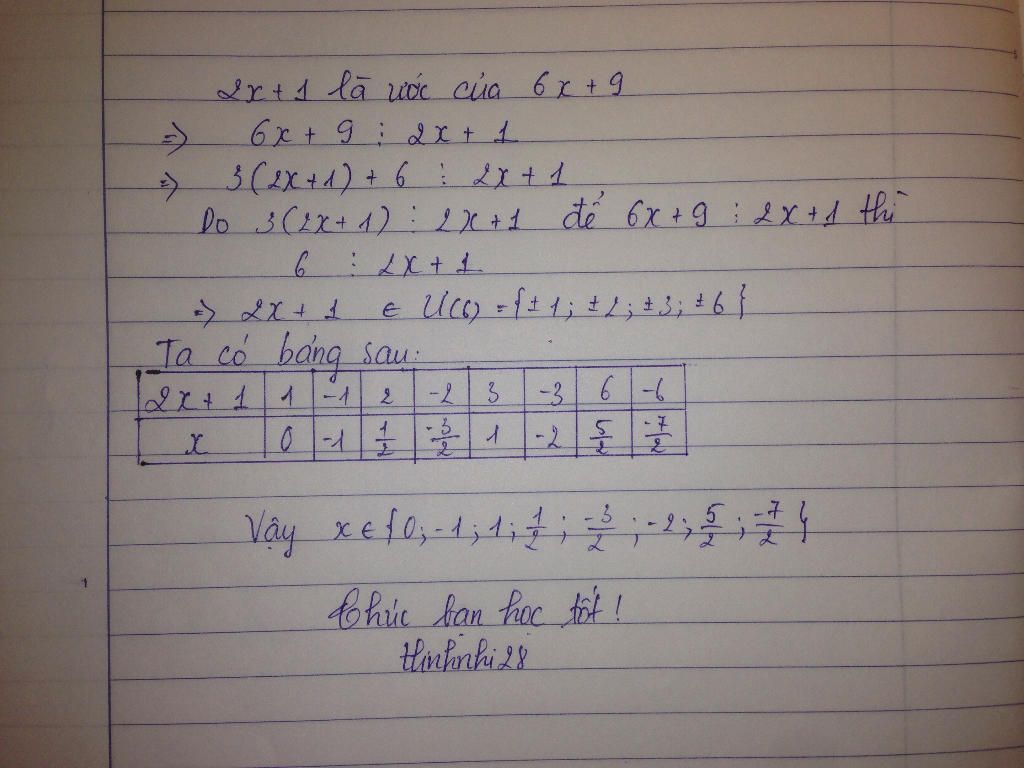 2x + 1 là ước của 6x + 9
=> 6x + 9 ⋮ 2x + 1
=> 3(2x+1) + 6 ⋮ 2x + 1
Do 3(2x+1) ⋮ 2x+1 để 6x+9 ⋮ 2x+1 thì
6 ⋮ 2x + 1
=> 2x + 1 ∈ Ư(6) = {±1; ±2; ±3; ±6}
Ta có bảng sau:
2x + 1 1 -1 2 -2 3 -3 6 -6
x 0 -1 1/2 -3/2 1 -2 5/2 -7/2
Vậy x ∈ {0; -1; 1; 1/2; -3/2; -2; 5/2; -7/2}
Chúc bạn học tốt!
thinhnhi28